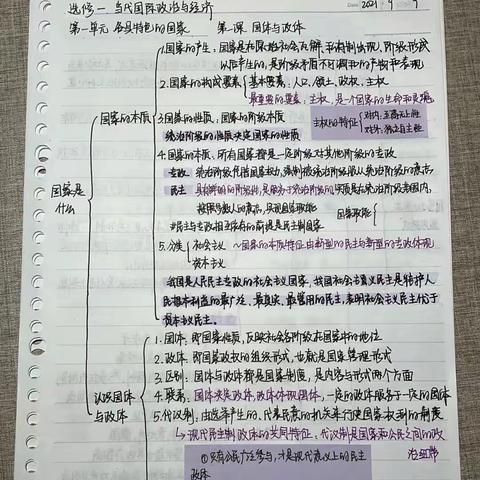 选修一 当代国际政治与经济
Date 2021 . 9 . 9
第一单元 各具特色的国家 第一课 国体与政体
国家是什么
国家的本质
1.国家的产生:国家是在原始社会瓦解 私有制出现、阶级形成
以后产生的,是阶级矛盾不可调和的产物和表现
2.国家的构成要素 基本要素:人口、领土、政权、主权
最重要的要素:主权,是一个国家的生命和灵魂
主权的特征 对内:至高无上性
对外:独立自主性
3.国家的性质:国家的阶级本质
统治阶级的性质决定国家的性质
4.国家的本质:所有国家都是一定阶级对其他阶级的专政
专政
民主
国家职能
民主与专政相互依存的前提是民主制国家
5.分类 社会主义 ~国家的本质特征由新型的民主与新型的专政体现
资本主义
我国是人民民主专政的社会主义国家,我国社会主义民主是维护人
民根本利益的最广泛、最真实、最管用的民主,表明社会主义民主优于
资本主义民主。
认识国体与政体
1.国体:即国家性质,反映社会各阶级在国家中的地位
2.政体:即国家政权的组织形式,也就是国家管理形式
3.区别:国体与政体都是国家制度,是内容与形式两个方面
4.联系:国体决定政体,政体体现国体,一定的政体服务于一定的国体
5.代议制:由选举产生的、代表民意的机关来行使国家权利的制度
↳现代民主制政体的共同特征:代议制是国家和公民之间的政
治纽带
①只有公民广泛参与,才是现代意义上的民主
政体